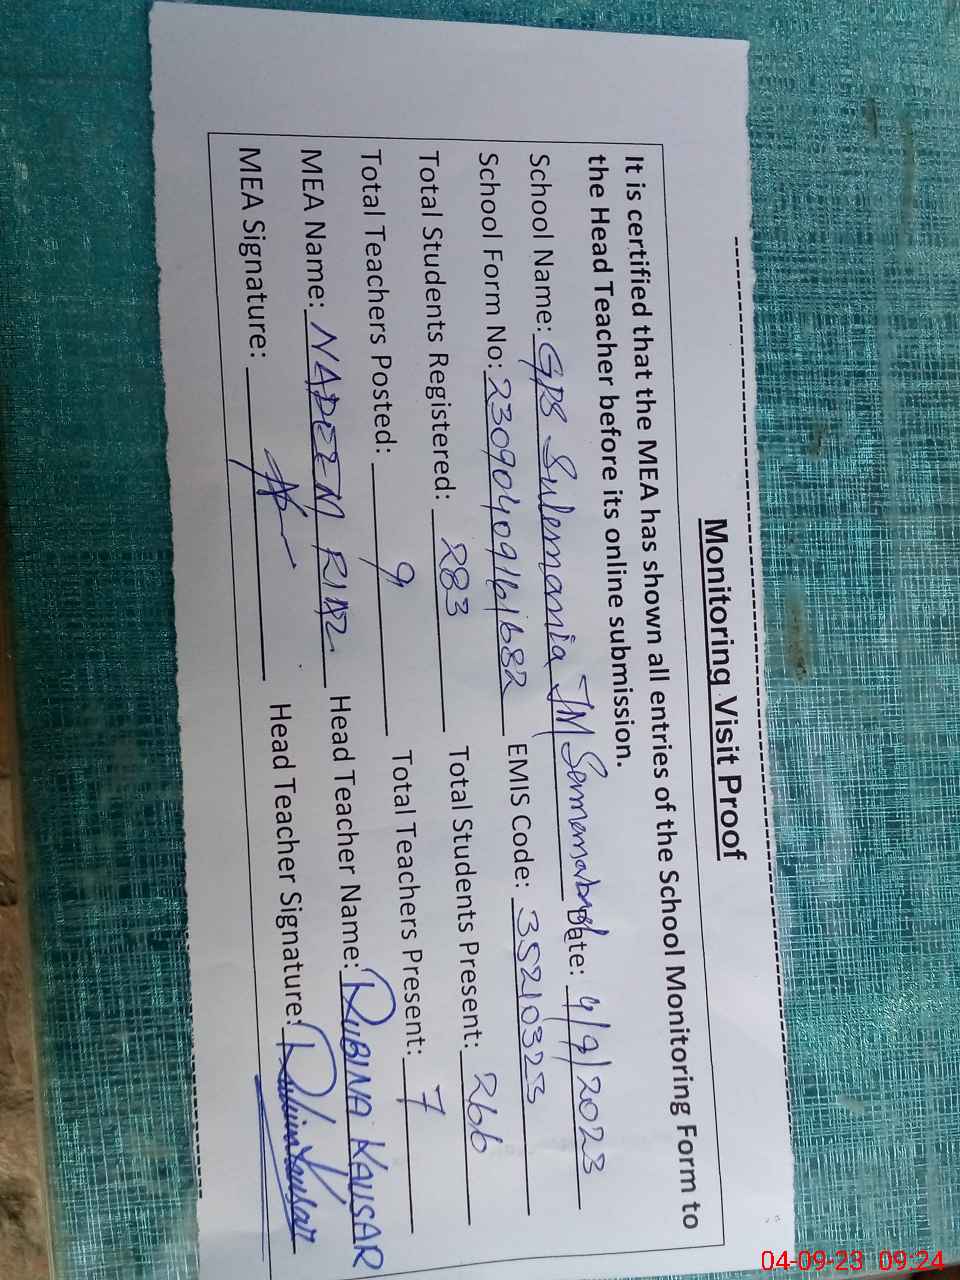 Monitoring Visit Proof
It is certified that the MEA has shown all entries of the School Monitoring Form to
the Head Teacher before its online submission.
School Name: GPS Sulemania JM Date: 4/9/2023
School Form No: 23090409161682 EMIS Code: 35210323
Total Students Registered: 283 Total Students Present: 266
Total Teachers Posted: 9 Total Teachers Present: 7
MEA Name: NADEEM RIAZ Head Teacher Name: RUBINA KAUSAR
MEA Signature: Head Teacher Signature: Rubina Kausar
04-09-23 09:24